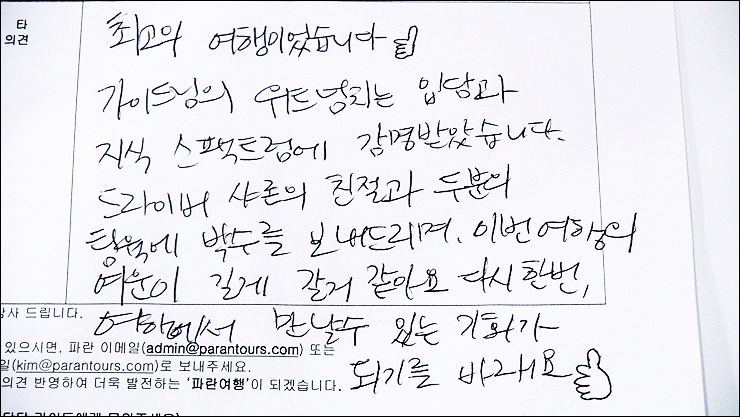 타
의견
최고의 여행이었습니다
가이드님의 위트넘치는 입담과
지식 스팩트럼에 감명받았습니다.
드라이버 샤론의 친절과 두분의
팀웍에 박수를 보내드리며. 이번여행의
여운이 길게 갈거 같아요 다시한번,
감사 드립니다.
여행에서 만날수 있는 기회가
있으시면, 파란 이메일(admin@parantours.com) 또는
일(kim@parantours.com)로 보내주세요.
의견 반영하여 더욱 발전하는 '파란여행'이 되겠습니다.
되기를 바래요